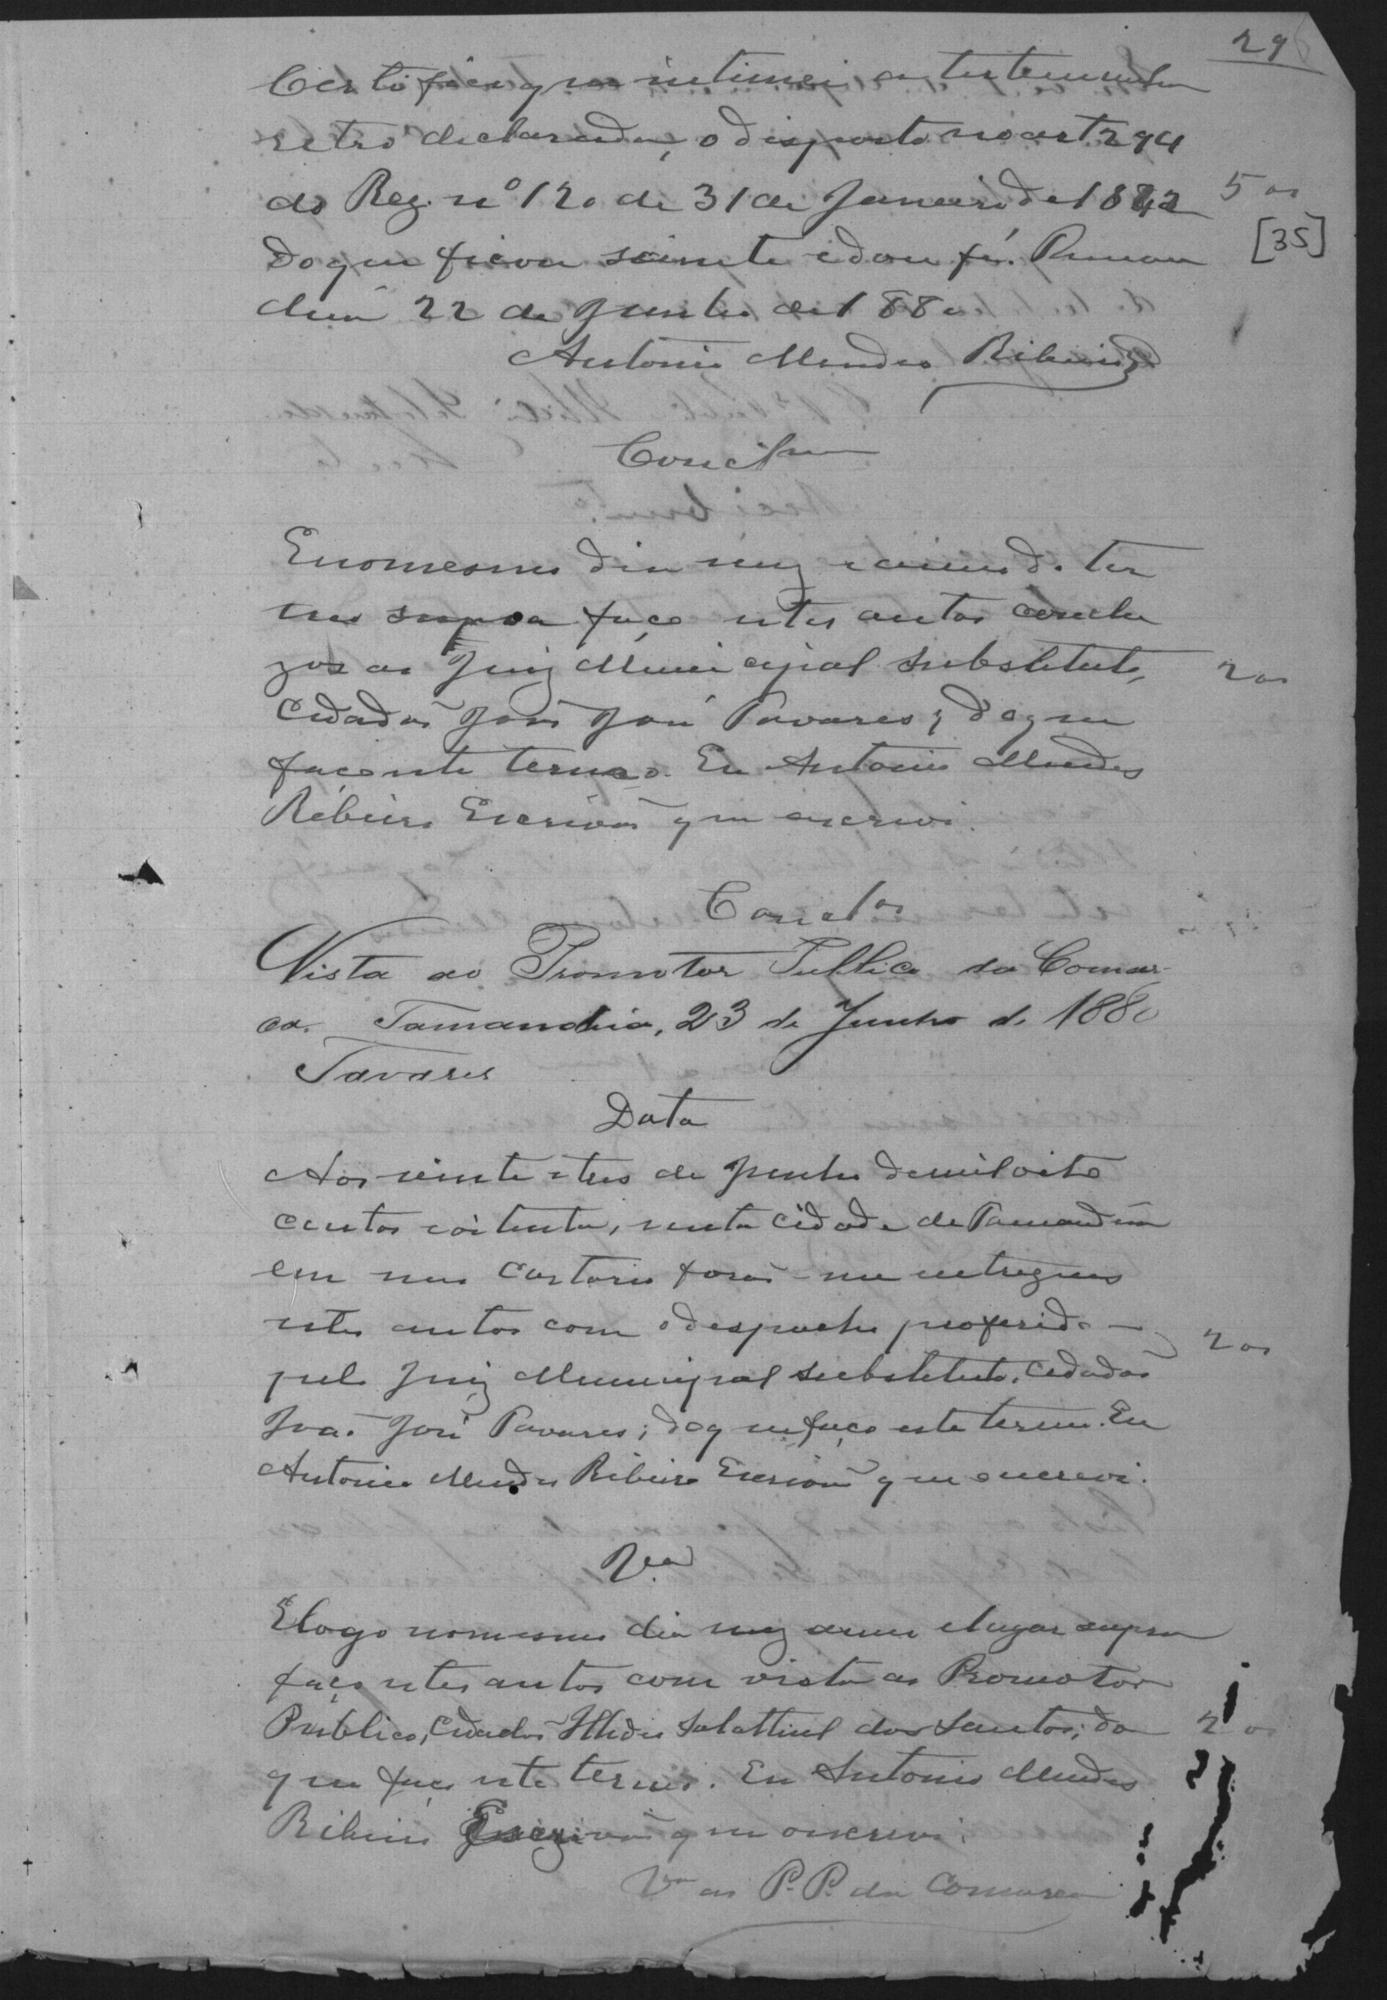 29
Certifico que intimei as testemunhas
retro declaradas, o disposto no art 294
do Reg. nº 120 de 31 de Janeiro de 1842
500
[35]
Do que ficou sciente e dou fé. Taman
duá 22 de Junho de 1880
Antonio Mendes Ribeiro
Conclsam
E no mesmo dia mez e anno do ter
mo supra faço estes autos conclu
zos ao Juiz Municipal substituto,
200
Cidadão João José Tavares; do que
faço este termo. Eu Antonio Mendes
Ribeiro Escrivão que escrevi.
Conclos
Vista ao Promotor Publico da Comar-
ca. Tamanduá, 23 de Junho de 1880
Tavares
Data
Aos vinte e tres de Junho de mil oito
centos e oitenta, nesta cidade de Tamanduá
em meu cartorio forão-me entregues
estes autos com o despacho proferido
200
pelo Juiz Municipal substituto, Cidadão
João José Tavares; do que faço este termo. Eu
Antonio Mendes Ribeiro Escrivão que o escrevi.
Vta
E logo no mesmo dia mez anno e lugar supra
faço estes autos com vista ao Promotor
Publico, Cidadão Salathiel dos Santos; do
200
que faço este termo. Eu Antonio Mendes
Ribeiro Escrivão que o escrevi.
Vta ao P. P. da Comarca